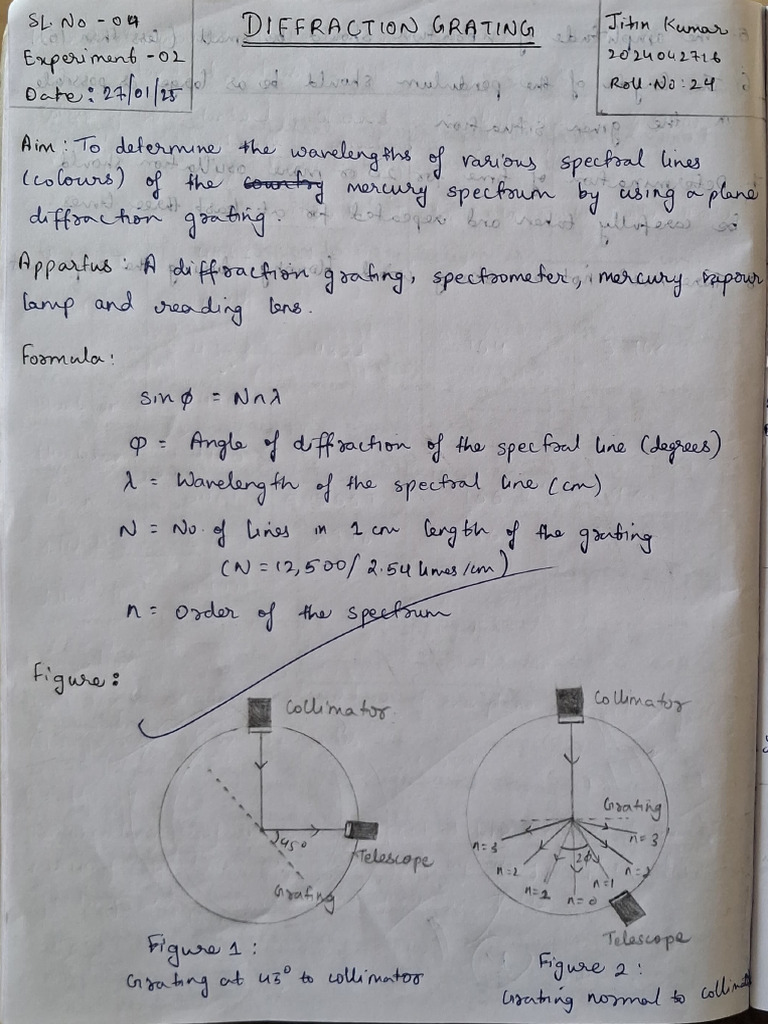 SL. No - 04
Experiment - 02
Date: 27/01/25
DIFFRACTION GRATING
Jitin Kumar
2024042716
Roll.No: 24
Aim: To determine the wavelengths of various spectral lines
(colours) of the mercury spectrum by using a plane
diffraction grating.
Appartus: A diffraction grating, spectrometer, mercury vapour
lamp and reading lens.
Formula:
sin φ = Nnλ
φ = Angle of diffraction of the spectral line (degrees)
λ = Wavelength of the spectral line (cm)
N = No. of lines in 1 cm length of the grating
(N = 12,500/2.54 lines/cm)
n = Order of the spectrum
Figure:
Collimator
45°
Telescope
Grating
Figure 1:
Grating at 45° to collimator
Collimator
Grating
n=3
n=3
n=2
2φ
n=2
n=1
n=0
Telescope
Figure 2:
Grating normal to